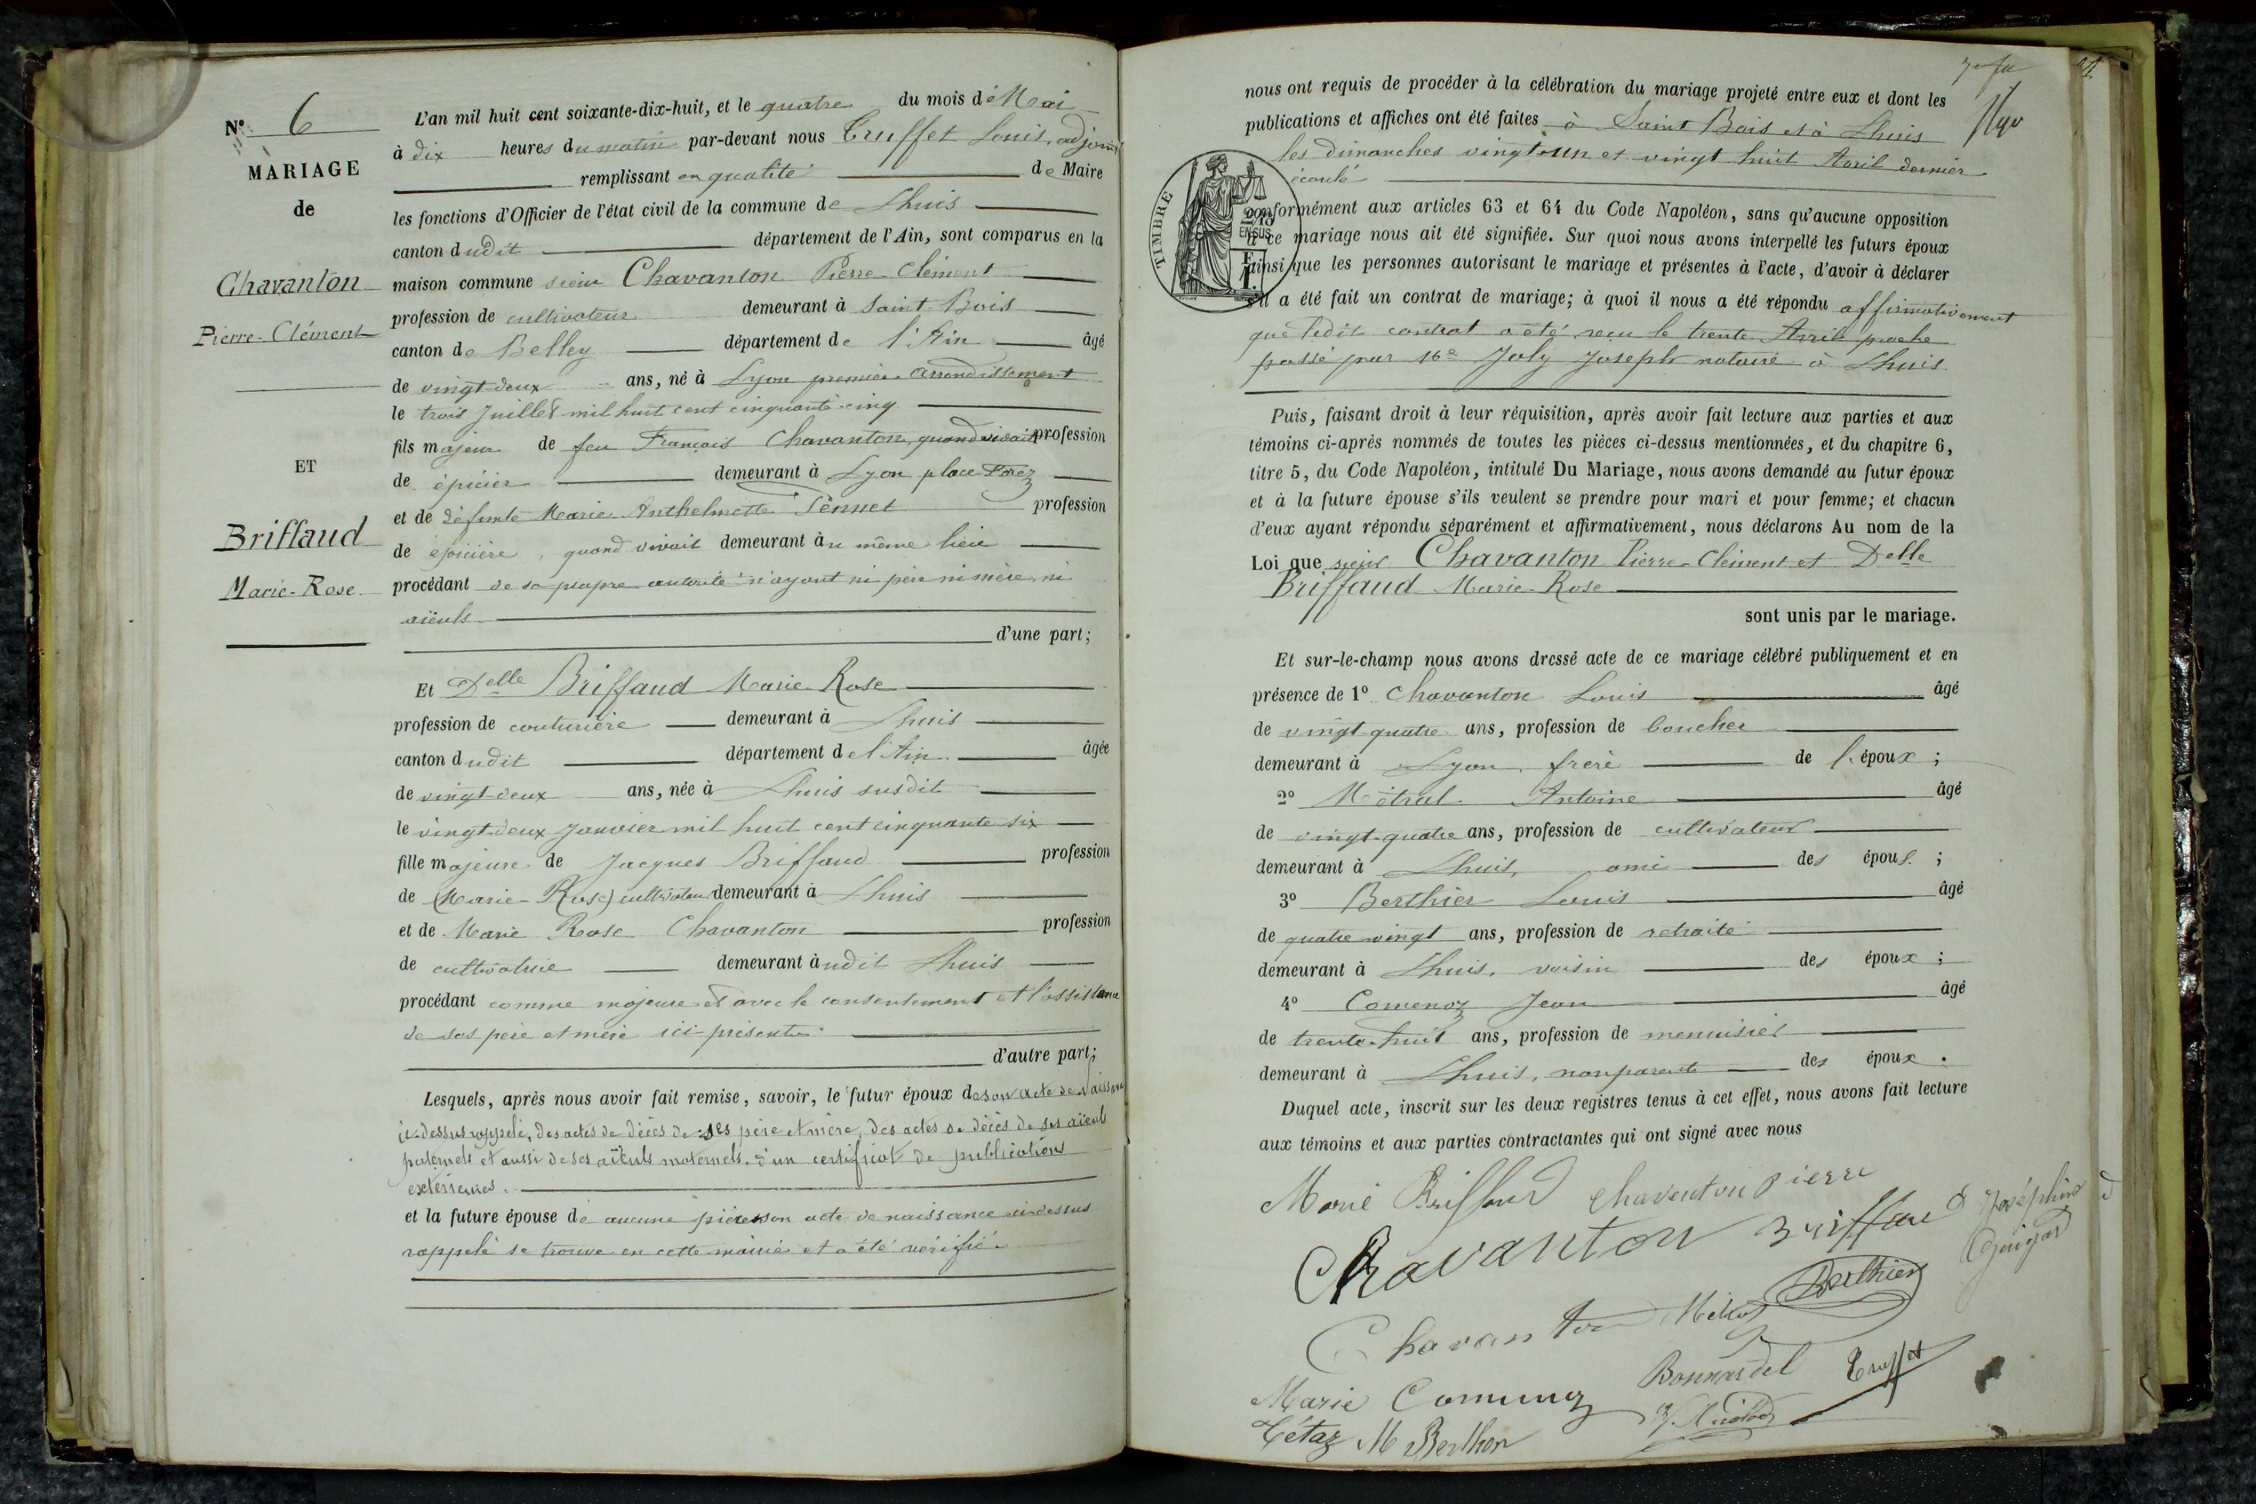 N° 6
MARIAGE
de
Chavanton
Pierre-Clément
ET
Briffaud
Marie-Rose
L'an mil huit cent soixante-dix-huit, et le quatre du mois de Mai
à dix heures du matin par-devant nous Truffet Louis, adjoint
remplissant en qualité de Maire
les fonctions d'Officier de l'état civil de la commune de Lhuis
canton dudit département de l'Ain, sont comparus en la
maison commune sieur Chavanton Pierre-Clément
profession de cultivateur demeurant à Saint-Bois
canton de Belley département de l'Ain âgé
de vingt-deux ans, né à Lyon premier arrondissement
le trois Juillet mil huit cent cinquante-cinq
fils majeur de feu François Chavanton, quand vivait profession
de épicier demeurant à Lyon place Forez
et de défunte Marie Anthelmette profession
de épicière, quand vivait demeurant au même lieu
procédant de sa propre autorité n'ayant ni père ni mère, ni
aïeuls
d'une part;
Et Delle Briffaud Marie-Rose
profession de couturière demeurant à Lhuis
canton dudit département de l'Ain âgée
de vingt-deux ans, née à Lhuis susdit
le vingt-deux Janvier mil huit cent cinquante six
fille majeure de Jacques Briffaud profession
de (Marie-Rose) cultivateur demeurant à Lhuis
et de Marie Rose Chavanton profession
de cultivatrice demeurant àudit Lhuis
procédant comme majeure et avec le consentement et l'assistance
de ses père et mère ici présents
d'autre part;
Lesquels, après nous avoir fait remise, savoir, le futur époux de son acte de Naissance
ci-dessus rappelé, des actes de décès de ses père et mère, des actes de décès de ses aïeuls
paternels et aussi de ses aïeuls maternels, d'un certificat de publications
extérieures.
et la future épouse de aucune pièce son acte de naissance ci-dessus
rappelé se trouve en cette mairie et a été vérifié
nous ont requis de procéder à la célébration du mariage projeté entre eux et dont les
publications et affiches ont été faites à Saint Bois et à Lhuis
les dimanches vingt-un et vingt huit Avril dernier
écoulé
TIMBRE
2/10
EN SUS
conformément aux articles 63 et 64 du Code Napoléon, sans qu'aucune opposition
à ce mariage nous ait été signifiée. Sur quoi nous avons interpellé les futurs époux
ainsi que les personnes autorisant le mariage et présentes à l'acte, d'avoir à déclarer
s'il a été fait un contrat de mariage; à quoi il nous a été répondu affirmativement
que ledit contrat a été reçu le trente Avril proche
passé par Me Joly Joseph notaire à Lhuis
Puis, faisant droit à leur réquisition, après avoir fait lecture aux parties et aux
témoins ci-après nommés de toutes les pièces ci-dessus mentionnées, et du chapitre 6,
titre 5, du Code Napoléon, intitulé Du Mariage, nous avons demandé au futur époux
et à la future épouse s'ils veulent se prendre pour mari et pour femme; et chacun
d'eux ayant répondu séparément et affirmativement, nous déclarons Au nom de la
Loi que sieur Chavanton Pierre-Clément et Delle
Briffaud Marie-Rose
sont unis par le mariage.
Et sur-le-champ nous avons dressé acte de ce mariage célébré publiquement et en
présence de 1° Chavanton Louis âgé
de vingt-quatre ans, profession de boucher
demeurant à Lyon, frère de l'époux;
2° Métral Antoine âgé
de vingt-quatre ans, profession de cultivateur
demeurant à Lhuis, ami des époux;
3° Berthier Louis âgé
de quatre-vingt ans, profession de retraité
demeurant à Lhuis, voisin des époux;
4° Comenoz Jean âgé
de trente-huit ans, profession de menuisier
demeurant à Lhuis, non parents des époux.
Duquel acte, inscrit sur les deux registres tenus à cet effet, nous avons fait lecture
aux témoins et aux parties contractantes qui ont signé avec nous
Marie Briffaud Chavanton Pierre
Chavanton Briffaud Joséphine
Berthier
Chavanton Métral
Bonnardel Truffet
Marie Comenoz
Tétaz M Berthon